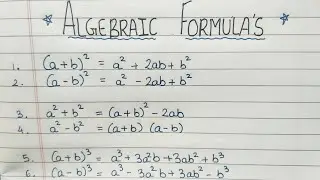 * ALGEBRAIC FORMULA'S *
1. (a+b)² = a² + 2ab + b²
2. (a-b)² = a² - 2ab + b²
3. a² + b² = (a+b)² - 2ab
4. a² - b² = (a+b) (a-b)
5. (a+b)³ = a³ + 3a²b + 3ab² + b³
6. (a-b)³ = a³ - 3a²b + 3ab² - b³